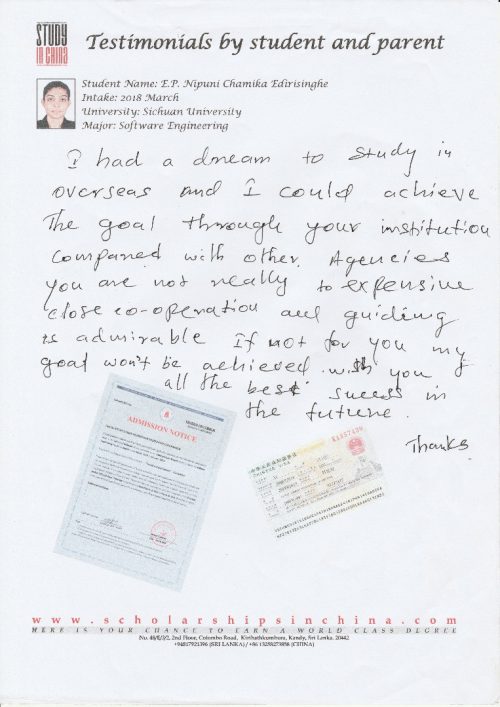 STUDY
IN CHINA
Testimonials by student and parent
Student Name: E.P. Nipuni Chamika Edirisinghe
Intake: 2018 March
University: Sichuan University
Major: Software Engineering
I had a dream to study in
overseas and I could achieve
The goal through your institution
Compared with other Agencies
you are not really to expensive
close co-operation and guiding
is admirable If not for you my
goal won't be achieved. wish you
all the best sucess in
the future.
Thanks
ADMISSION NOTICE
K1857439
www.scholarshipsinchina.com
HERE IS YOUR CHANCE TO EARN A WORLD CLASS DEGREE
2nd Floor, Colombo Road, Kiribathkumbura, Kandy, Sri Lanka. 20442
+94817921396 (SRI LANKA) / +86 13258273858 (CHINA)